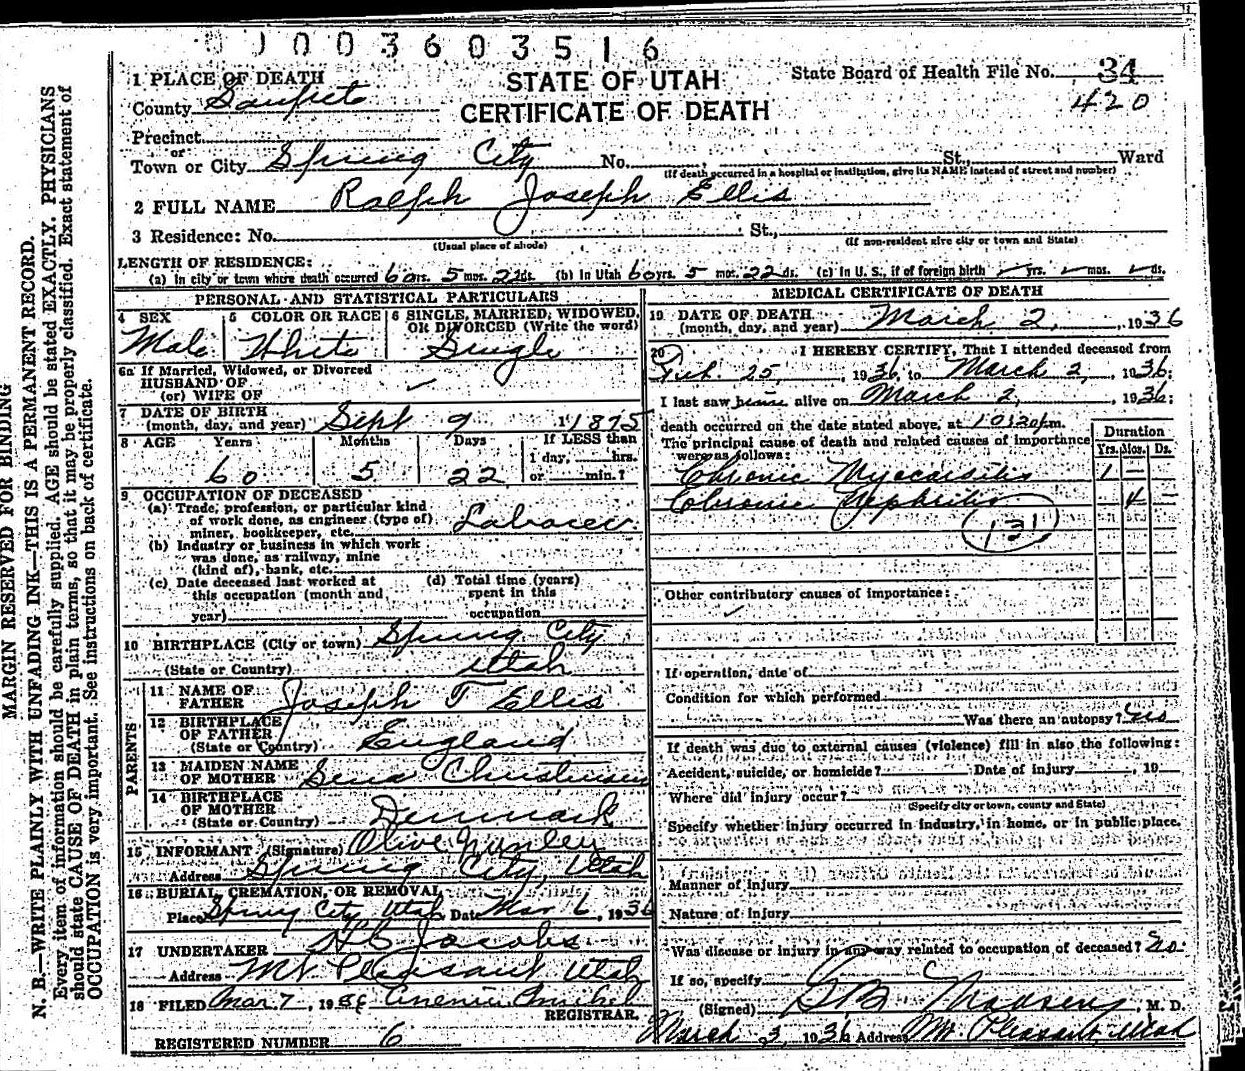 0100360 3516
1 PLACE OF DEATH
STATE OF UTAH
CERTIFICATE OF DEATH
State Board of Health File No. 34
420
County Sanpete
Precinct
or
Town or City Spring City No. , St., Ward
(If death occurred in a hospital or institution, give its NAME instead of street and number)
2 FULL NAME Ralph Joseph Ellis
3 Residence: No. St.,
(Usual place of abode) (If non-resident give city or town and State)
LENGTH OF RESIDENCE:
(a) In city or town where death occurred 60 yrs. 5 mos. 22 ds. (b) In Utah 60 yrs. 5 mos. 22 ds. (c) In U. S., if of foreign birth yrs. mos. ds.
PERSONAL AND STATISTICAL PARTICULARS
4 SEX
Male
5 COLOR OR RACE
White
6 SINGLE, MARRIED, WIDOWED, OR DIVORCED (Write the word)
Single
6a If Married, Widowed, or Divorced
HUSBAND OF
(or) WIFE OF
7 DATE OF BIRTH
(month, day, and year) Sept 9 1875
8 AGE Years Months Days If LESS than
1 day, hrs.
60 5 22 or min.?
9 OCCUPATION OF DECEASED
(a) Trade, profession, or particular kind
of work done, as engineer (type of)
miner, bookkeeper, etc. Laborer
(b) Industry or business in which work
was done, as railway, mine
(kind of), bank, etc.
(c) Date deceased last worked at
this occupation (month and
year)
(d) Total time (years)
spent in this
occupation
10 BIRTHPLACE (City or town) Spring City
(State or Country) Utah
PARENTS
11 NAME OF
FATHER Joseph T Ellis
12 BIRTHPLACE
OF FATHER
(State or Country) England
13 MAIDEN NAME
OF MOTHER Sena Christensen
14 BIRTHPLACE
OF MOTHER
(State or Country) Denmark
15 INFORMANT (Signature) Olive
Address Spring City, Utah
16 BURIAL, CREMATION, OR REMOVAL
Place Spring City Utah Date Mar 6, 1936
17 UNDERTAKER H C Jacobs
Address Mt Pleasant Utah
18 FILED Mar 7, 1936
REGISTRAR.
REGISTERED NUMBER 6
MEDICAL CERTIFICATE OF DEATH
19 DATE OF DEATH
(month, day, and year) March 2, 1936
20 I HEREBY CERTIFY, That I attended deceased from
Feb. 25, 1936, to March 2, 1936;
I last saw him alive on March 2, 1936;
death occurred on the date stated above, at m.
The principal cause of death and related causes of importance
were as follows:
Duration
Yrs. Mos. Ds.
Chronic Myocarditis 1 —
Chronic Nephritis 4
131
Other contributory causes of importance:
If operation, date of
Condition for which performed
Was there an autopsy? No
If death was due to external causes (violence) fill in also the following:
Accident, suicide, or homicide? Date of injury , 19
Where did injury occur?
(Specify city or town, county and State)
Specify whether injury occurred in industry, in home, or in public place.
Manner of injury
Nature of injury
Was disease or injury in any way related to occupation of deceased? No
If so, specify
(Signed) Madsen, M. D.
March 3, 1936 Address Mt Pleasant, Utah
MARGIN RESERVED FOR BINDING
N. B.—WRITE PLAINLY WITH UNFADING INK—THIS IS A PERMANENT RECORD.
Every item of information should be carefully supplied. AGE should be stated EXACTLY. PHYSICIANS
should state CAUSE OF DEATH in plain terms, so that it may be properly classified. Exact statement of
OCCUPATION is very important. See instructions on back of certificate.